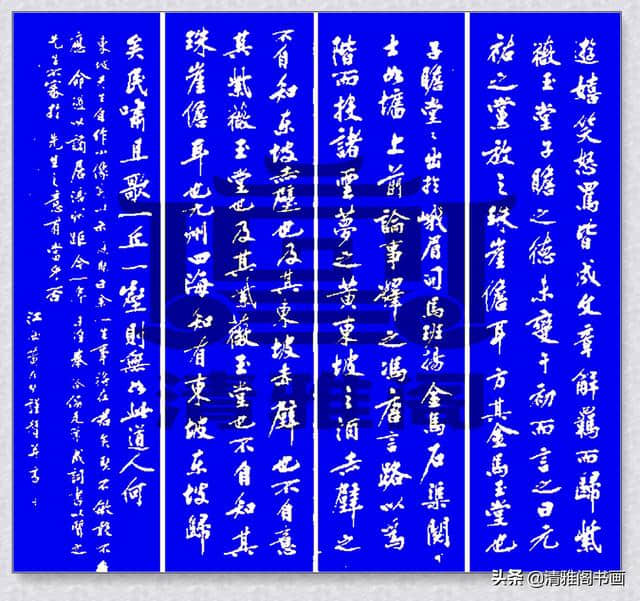 遊嬉笑怒罵皆成文章解羈而歸紫
薇玉堂子瞻之德未變于初而言之曰元
祐之黨放之珠崖儋耳方其金馬玉堂也
子瞻堂〻出於峨眉司馬班揚金馬石渠閱
士如墻上前論事釋之馮唐言路以為
階而投諸雲夢之黃東坡之酒赤壁之
不自知東坡赤壁也及其東坡赤壁也不自意
其紫薇玉堂也及其紫薇玉堂也不自知其
珠崖儋耳也九州四海知有東坡東坡歸
矣民嘯且歌一丘一壑則無如此道人何
東坡先生自作小像
先生之意有當乎否
清雅阁
头条 @清雅阁书画